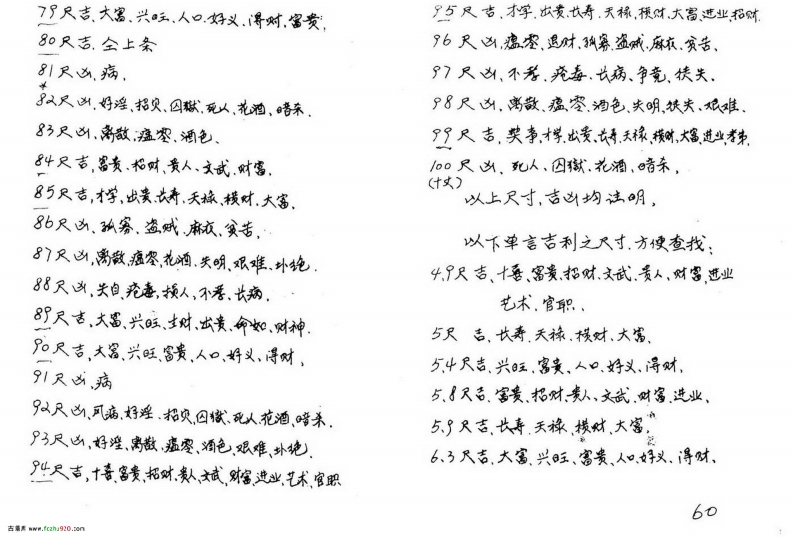 79尺吉,大富、兴旺、人口、好义、得财、富贵,
80尺吉.仝上条
81尺凶,病.
82尺凶,好淫、招贝、囚獄、死人、花酒、暗杀.
83尺凶,离散、瘟零、酒色.
84尺吉,富贵、招财、贵人、文武、财富.
85尺吉,才学、出贵、长寿、天禄、横财、大富.
86尺凶、孤寡、盗贼、麻衣、贫苦.
87尺凶,离散、瘟零、花酒、失明、艰难、
88尺凶、疮毒、损人、不孝、长病.
89尺吉、大富、兴旺、生财、出贵、财神.
90尺吉、大富、兴旺、富贵、人口、好义、得财.
91尺凶,病
92尺凶,风病、好淫、招贝、囚獄、死人、花酒、暗杀.
93尺凶,好淫、离散、瘟零、酒色、艰难、
94尺吉,十喜、富贵、招财、贵人、文武、财富、进业、艺术、官职
95尺吉、才学、出贵、长寿、天禄、横财、大富、进业、招财.
96尺凶,瘟零、退财、孤寡、盗贼、麻衣、贫苦.
97尺凶,不孝、疮毒、长病、争竞、
98尺凶,离散、瘟零、酒色、失明、艰难.
99尺吉,才学、出贵、长寿、天禄、横财、大富、进业、
100尺凶、死人、囚獄、花酒、暗杀,
(十丈)
以上尺寸,吉凶均注明,
以下单言吉利之尺寸.方便查找:
4.9尺吉、十喜、富贵、招财、文武、贵人、财富、进业
艺术、官职、
5尺 吉、长寿、天禄、横财、大富、
5.4尺吉、兴旺、富贵、人口、好义、得财.
5.8尺吉、富贵、招财、贵人、文武、财富、进业、
5.9尺吉、长寿、天禄、横财、大富,
6.3尺吉、大富、兴旺、富贵、人口、好义、得财.
60
www.fczhu920.com